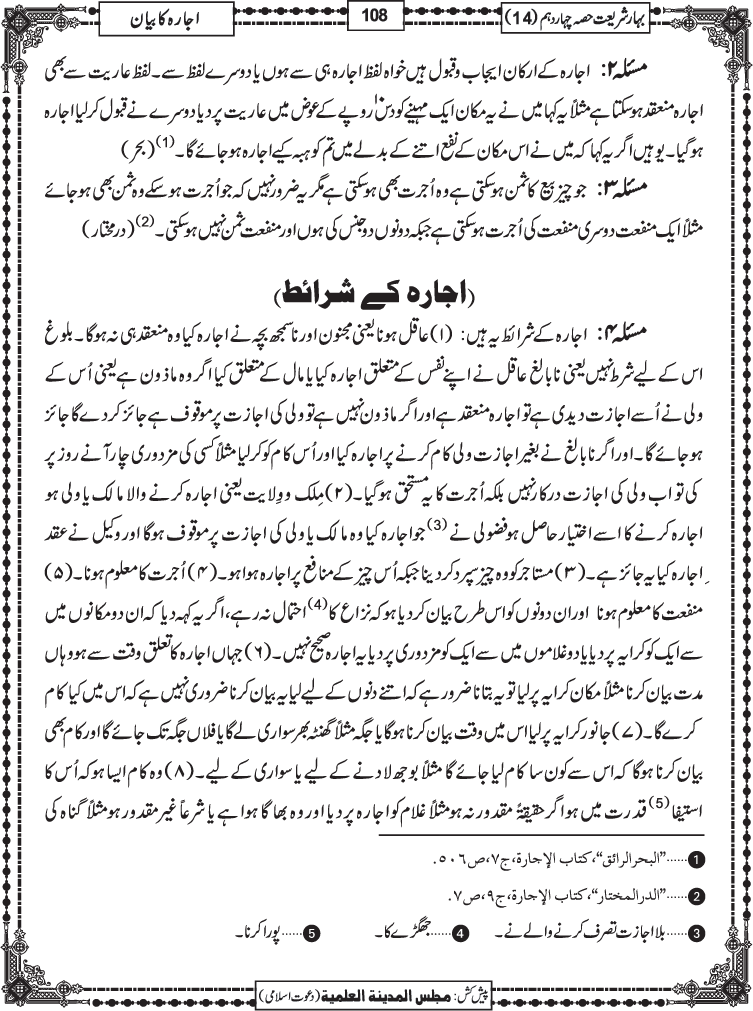 بہارِ شریعت حصہ چہاردہم (14)
108
اجارہ کا بیان
مسئلہ ۲: اجارہ کے ارکان ایجاب و قبول ہیں خواہ لفظ اجارہ ہی سے ہوں یا دوسرے لفظ سے۔ لفظ عاریت سے بھی
اجارہ منعقد ہوسکتا ہے مثلاً یہ کہا میں نے یہ مکان ایک مہینے کو دس روپے کے عوض میں عاریت پر دیا دوسرے نے قبول کرلیا اجارہ
ہوگیا۔ یوہیں اگر یہ کہا کہ میں نے اس مکان کے نفع اتنے کے بدلے میں تم کو ہبہ کیے اجارہ ہوجائے گا۔(1) (بحر)
مسئلہ ۳: جو چیز بیع کا ثمن ہوسکتی ہے وہ اُجرت بھی ہوسکتی ہے مگر یہ ضرور نہیں کہ جو اُجرت ہوسکے وہ ثمن بھی ہوجائے
مثلاً ایک منفعت دوسری منفعت کی اُجرت ہوسکتی ہے جبکہ دونوں دو جنس کی ہوں اور منفعت ثمن نہیں ہوسکتی۔(2) (درمختار)
(اجارہ کے شرائط)
مسئلہ ۴: اجارہ کے شرائط یہ ہیں: (۱) عاقل ہونا یعنی مجنون اور ناسمجھ بچہ نے اجارہ کیا وہ منعقد ہی نہ ہوگا۔ بلوغ
اس کے لیے شرط نہیں یعنی نابالغ عاقل نے اپنے نفس کے متعلق اجارہ کیا یا مال کے متعلق کیا اگر وہ ماذون ہے یعنی اُس کے
ولی نے اُسے اجازت دیدی ہے تو اجارہ منعقد ہے اور اگر ماذون نہیں ہے تو ولی کی اجازت پر موقوف ہے جائز کردے گا جائز
ہوجائے گا۔ اور اگر نابالغ نے بغیر اجازت ولی کام کرنے پر اجارہ کیا اور اُس کام کو کرلیا مثلاً کسی کی مزدوری چار آنے روز پر
کی تو اب ولی کی اجازت درکار نہیں بلکہ اُجرت کا یہ مستحق ہوگیا۔ (۲) مِلک و وِلایت یعنی اجارہ کرنے والا مالک یا ولی ہو
اجارہ کرنے کا اسے اختیار حاصل ہو فضولی نے(3) جو اجارہ کیا وہ مالک یا ولی کی اجازت پر موقوف ہوگا اور وکیل نے عقد
ِاجارہ کیا یہ جائز ہے۔ (۳) مستاجر کو وہ چیز سپرد کردینا جبکہ اُس چیز کے منافع پر اجارہ ہوا ہو۔ (۴) اُجرت کا معلوم ہونا۔ (۵)
منفعت کا معلوم ہونا اور ان دونوں کو اس طرح بیان کردیا ہو کہ نزاع کا(4) احتمال نہ رہے، اگر یہ کہہ دیا کہ ان دو مکانوں میں
سے ایک کو کرایہ پر دیا یا دو غلاموں میں سے ایک کو مزدوری پر دیا یہ اجارہ صحیح نہیں۔ (۶) جہاں اجارہ کا تعلق وقت سے ہو وہاں
مدت بیان کرنا مثلاً مکان کرایہ پر لیا تو یہ بتانا ضرور ہے کہ اتنے دنوں کے لیے لیا یہ بیان کرنا ضروری نہیں ہے کہ اس میں کیا کام
کرے گا۔ (۷) جانور کرایہ پر لیا اس میں وقت بیان کرنا ہوگا یا جگہ مثلاً گھنٹہ بھر سواری لے گا یا فلاں جگہ تک جائے گا اور کام بھی
بیان کرنا ہوگا کہ اس سے کون سا کام لیا جائے گا مثلاً بوجھ لادنے کے لیے یا سواری کے لیے۔ (۸) وہ کام ایسا ہو کہ اُس کا
استیفا(5) قدرت میں ہو اگر حقیقۃً مقدور نہ ہو مثلاً غلام کو اجارہ پر دیا اور وہ بھاگا ہوا ہے یا شرعاً غیر مقدور ہو مثلاً گناہ کی
1 ......"البحرالرائق"، کتاب الإجارۃ، ج۷، ص۵۰۶.
2 ......"الدرالمختار"، کتاب الإجارۃ، ج۹، ص۷.
3 ...... بلا اجازت تصرف کرنے والے نے۔ 4 ...... جھگڑے کا۔ 5 ...... پورا کرنا۔
پیش کش: مجلس المدینۃ العلمیۃ (دعوتِ اسلامی)